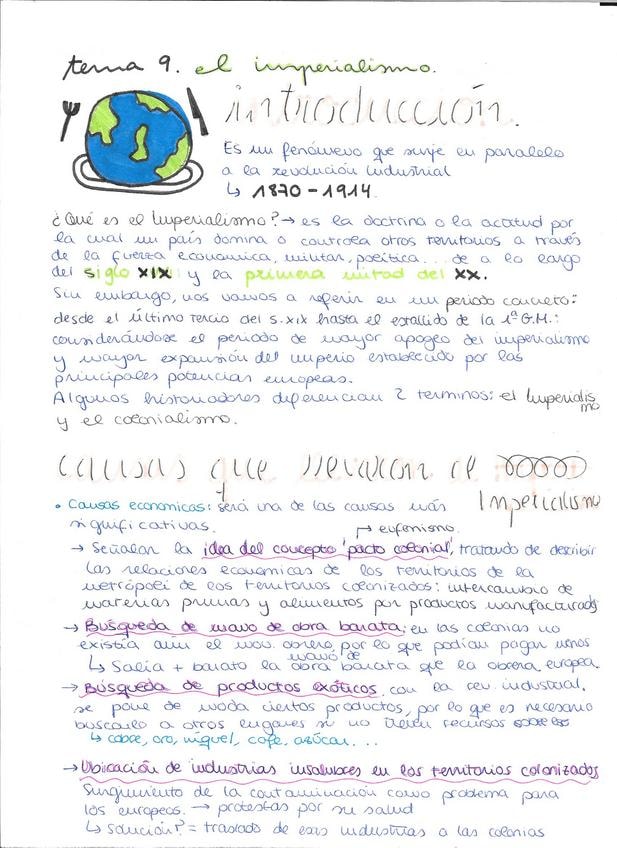 tema 9. el imperialismo.
introducción.
Es un fenómeno que surje en paralelo
a la revolución industrial
↳ 1870-1914.
¿Qué es el Imperialismo? → es la doctrina o la actitud por
la cual un país domina o controla otros territorios a través
de la fuerza económica, militar, política... de a lo largo
del siglo XIX y la primera mitad del XX.
Sin embargo, nos vamos a referir en un periodo concreto:
desde el último tercio del s.XIX hasta el estallido de la 1ª G.M.:
considerándose el periodo de mayor apogeo del imperialismo
y mayor expansión del imperio establecido por las
principales potencias europeas.
Algunos historiadores diferencian 2 terminos: el Imperialismo
y el colonialismo.
causas que llevaron al
Imperialismo
• Causas económicas: será una de las causas más
significativas.
↱ eufemismo.
→ Señalar la idea del concepto 'pacto colonial', tratando de describir
las relaciones económicas de los territorios de la
metrópoli de los territorios colonizados: intercambio de
materias primas y alimentos por productos manufacturados
→ Búsqueda de mano de obra barata: en las colonias no
existía aún el mov. obrero por lo que podían pagar menos
↳ Salía + barato la mano de obra barata que la obrera europea.
→ Búsqueda de productos exóticos con la rev. industrial.
se pone de moda ciertos productos, por lo que es necesario
buscarlo a otros lugares si no tienen recursos
↳ cobre, oro, níquel, café, azúcar...
→ Ubicación de industrias insalubres en los territorios colonizados
Surgimiento de la contaminación como problema para
los europeos. → protestas por su salud
↳ Solución? = traslado de esas industrias a las colonias